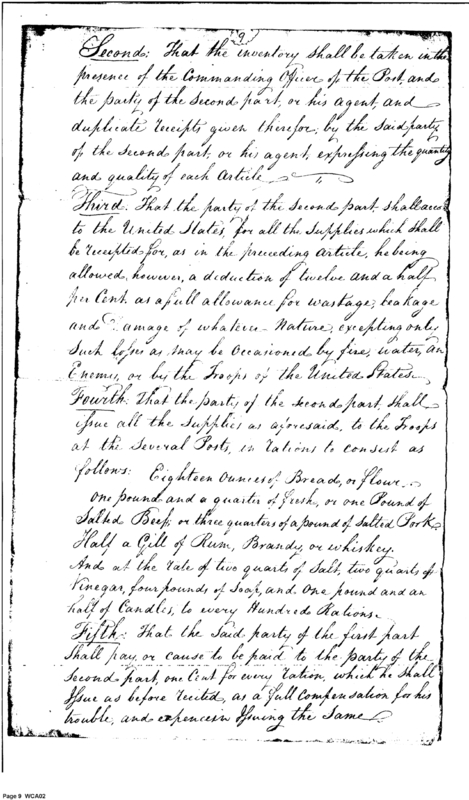 9
Second: That the inventory shall be taken in the
presence of the Commanding Officer of the Post, and
the party of the second part, or his agent, and
duplicate receipts given therefor, by the said party
of the second part, or his agent, expressing the quantity
and quality of each Article
Third. That the party of the second part, shall
to the United States, for all the supplies which shall
be receipted for, as in the preceding article, he being
allowed, however, a deduction of twelve and a half
per Cent as a full allowance for wastage, leakage
and Damage of whatever Nature, excepting only
such losses as may be occasioned by fire, water, an
Enemy, or by the Troops of the United States
Fourth. That the party of the second part, shall
issue all the supplies as aforesaid, to the Troops
at the several Posts, in rations to consist as
follows: Eighteen Ounces of Bread, or flour.
One pound and a quarter of fresh, or one Pound of
Salted Beef, or three quarters of a pound of Salted Pork.
Half a Gill of Rum, Brandy, or whiskey.
And at the Rate of two quarts of Salt, two quarts of
Vinegar, four pounds of Soap, and One pound and an
half of Candles, to every Hundred Rations.
Fifth. That the said party of the first part
shall pay, or cause to be paid to the party of the
second part, one Cent for every ration, which he shall
Issue as before recited, as a full compensation for his
trouble, and expences in Issuing the Same
Page 9 WCA02